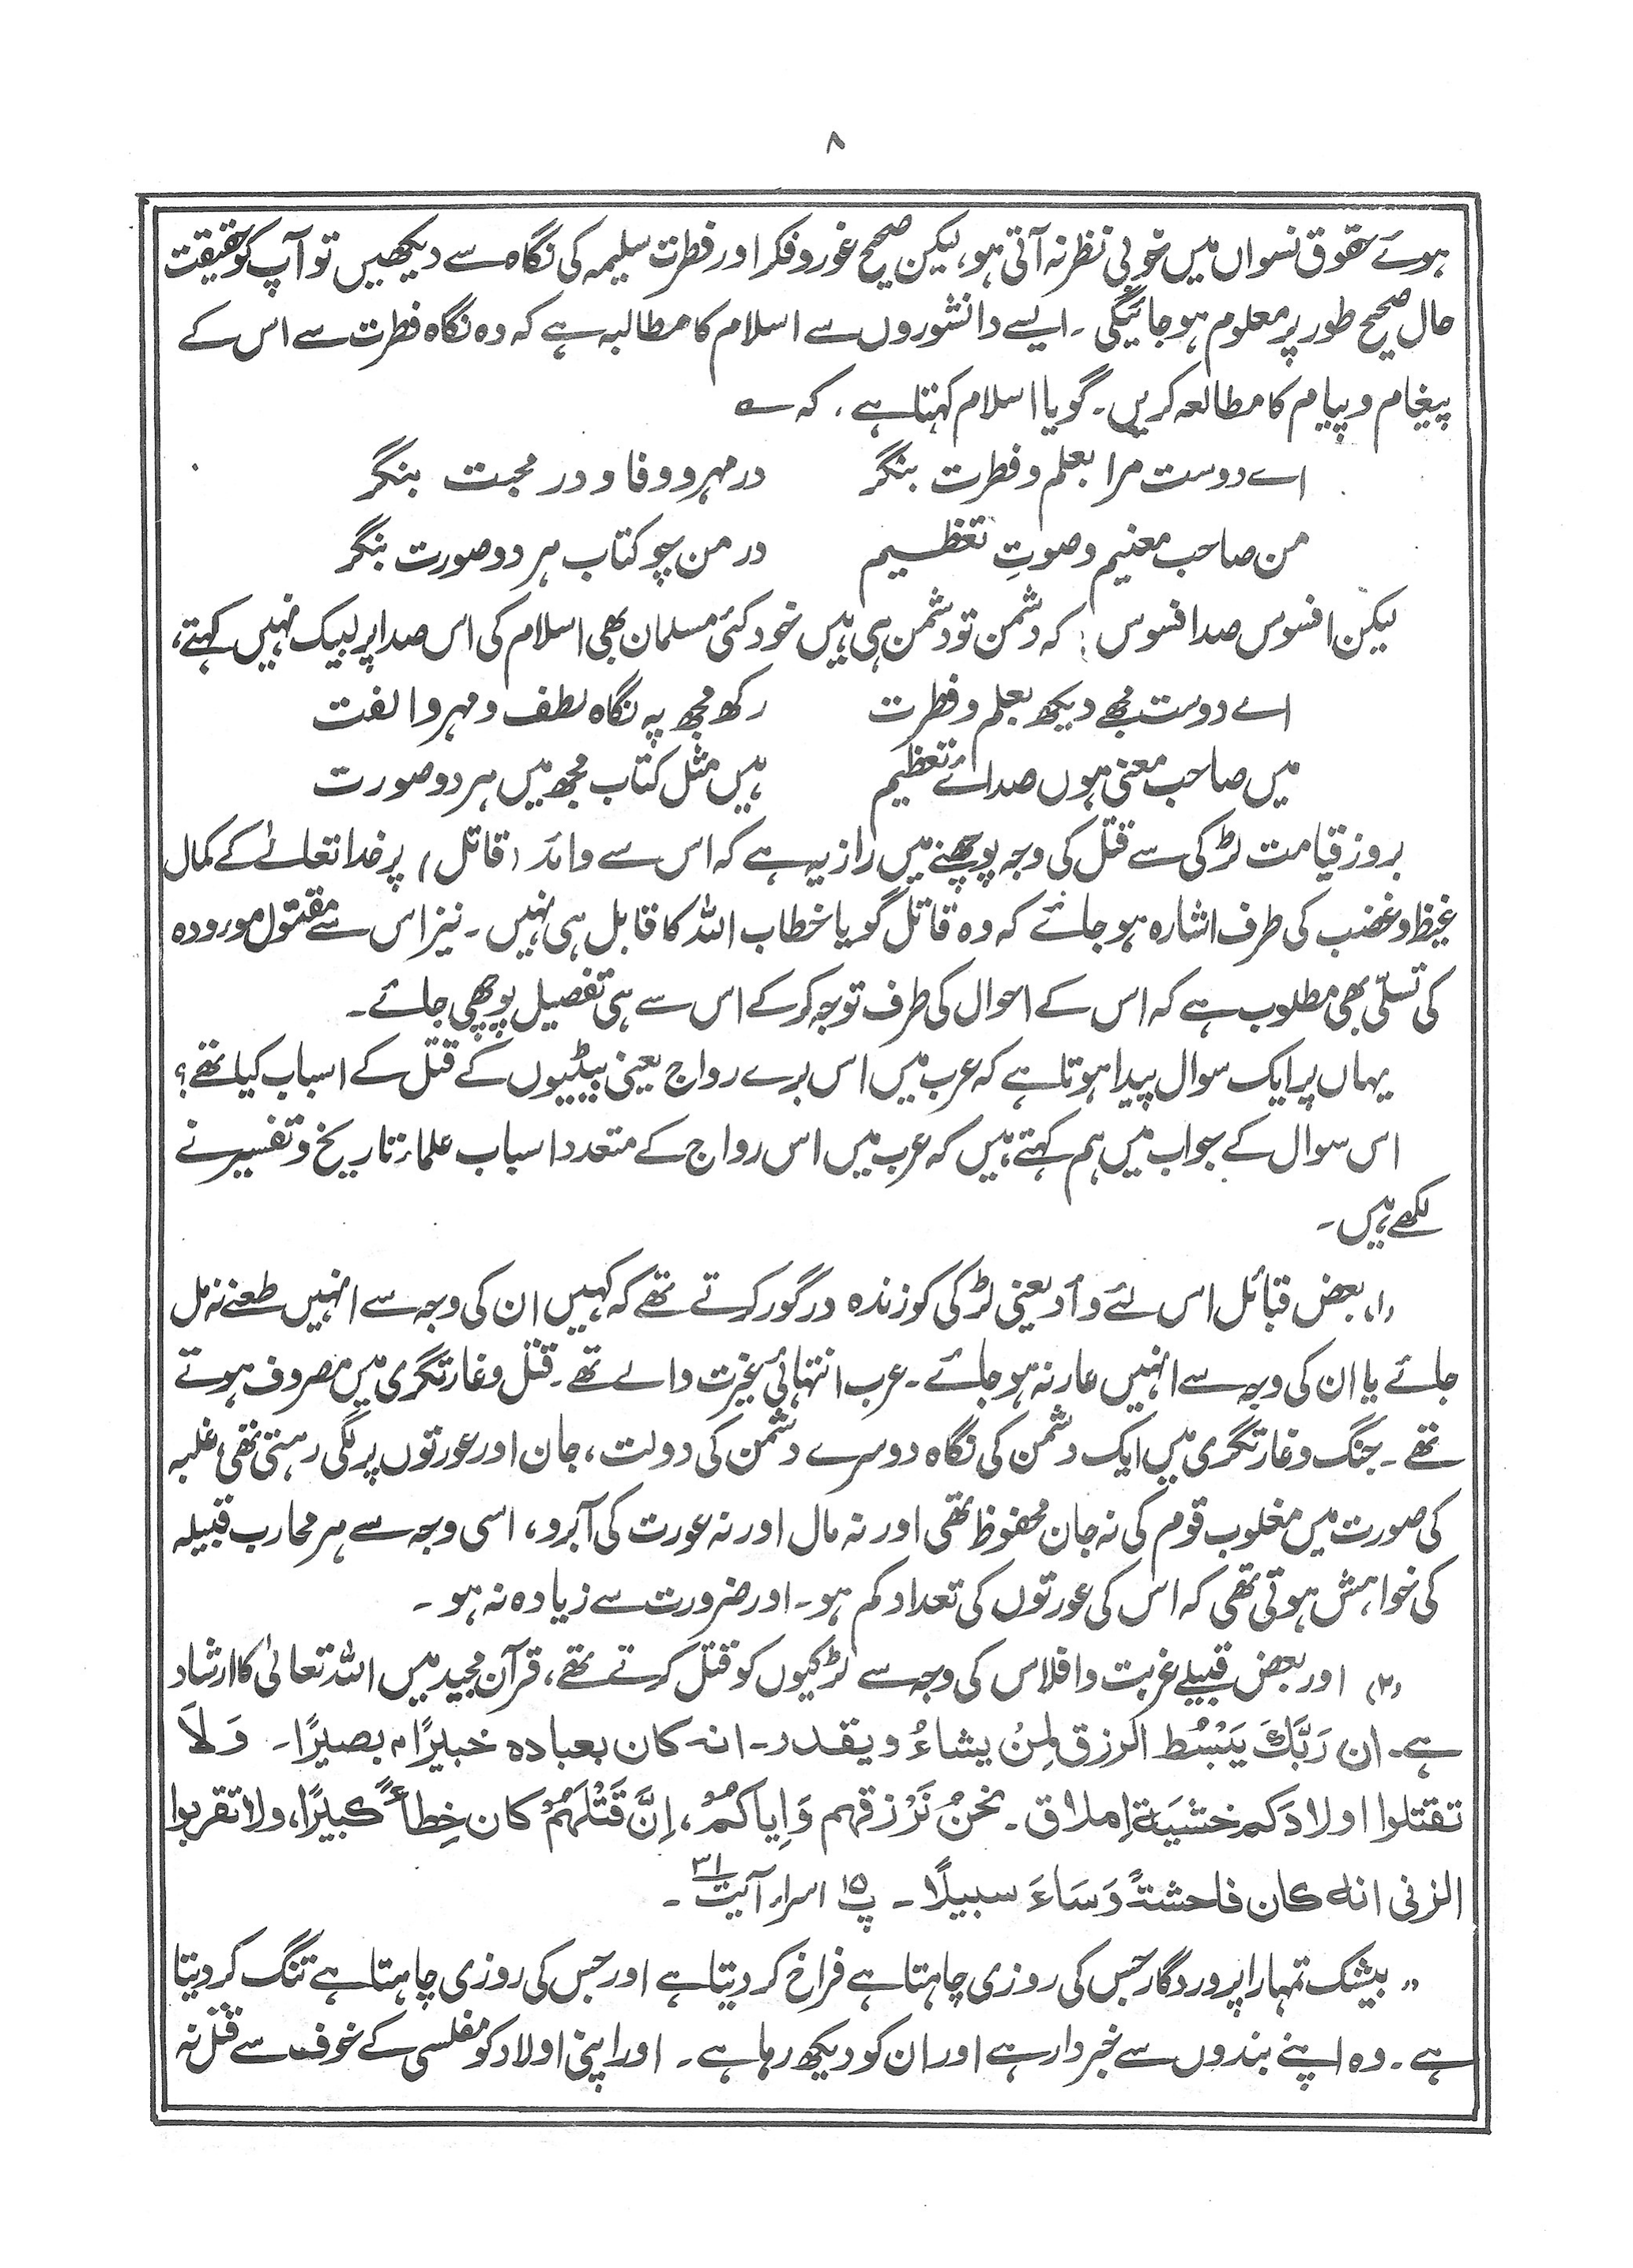 ۸
ہوئے حقوق نسواں میں خوبی نظر نہ آتی ہو، لیکن صحیح غور و فکر اور فطرت سلیمہ کی نگاہ سے دیکھیں تو آپ کو حقیقت
حال صحیح طور پر معلوم ہو جائیگی ۔ ایسے دانشوروں سے اسلام کا مطالبہ ہے کہ وہ نگاہ فطرت سے اس کے
پیغام و پیام کا مطالعہ کریں۔ گویا اسلام کہتا ہے، کہ ؎
اے دوست مرا بعلم و فطرت بنگر      در مہر و وفا و در محبت بنگر
من صاحب معنیم وصوتِ تعظیم      در من چو کتاب ہر دو صورت بنگر
لیکن افسوس صد افسوس! کہ دشمن تو دشمن ہی ہیں خود کئی مسلمان بھی اسلام کی اس صدا پر لبیک نہیں کہتے،
اے دوست مجھے دیکھ بعلم و فطرت      رکھ مجھ پہ نگاہ لطف و مہر و الفت
میں صاحب معنی ہوں صدائے تعظیم      ہیں مثل کتاب مجھ میں ہر دو صورت
بروز قیامت لڑکی سے قتل کی وجہ پوچھنے میں راز یہ ہے کہ اس سے وائد (قاتل) پر خدا تعالےٰ کے کمال
غیظ و غضب کی طرف اشارہ ہو جائے کہ وہ قاتل گویا خطاب اللہ کا قابل ہی نہیں ۔ نیز اس سے مقتول موردہ
کی تسلّی بھی مطلوب ہے کہ اس کے احوال کی طرف توجہ کر کے اس سے ہی تفصیل پوچھی جائے ۔
یہاں پر ایک سوال پیدا ہوتا ہے کہ عرب میں اس برے رواج یعنی بیٹیوں کے قتل کے اسباب کیا تھے؟
اس سوال کے جواب میں ہم کہتے ہیں کہ عرب میں اس رواج کے متعدد اسباب علماء تاریخ و تفسیر نے
لکھے ہیں ۔
(۱) بعض قبائل اس لئے وأد یعنی لڑکی کو زندہ درگور کرتے تھے کہ کہیں ان کی وجہ سے انہیں طعنے نہ مل
جائے یا ان کی وجہ سے انہیں عار نہ ہو جائے ۔ عرب انتہائی غیرت والے تھے ۔ قتل و غارتگری میں مصروف ہوتے
تھے ۔ جنگ و غارتگری میں ایک دشمن کی نگاہ دوسرے دشمن کی دولت، جان اور عورتوں پر لگی رہتی تھی، غلبہ
کی صورت میں مغلوب قوم کی نہ جان محفوظ تھی اور نہ مال اور نہ عورت کی آبرو، اسی وجہ سے ہر محارب قبیلہ
کی خواہش ہوتی تھی کہ اس کی عورتوں کی تعداد کم ہو ۔ اور ضرورت سے زیادہ نہ ہو ۔
(۲) اور بعض قبیلے غربت و افلاس کی وجہ سے لڑکیوں کو قتل کرتے تھے، قرآن مجید میں اللہ تعالیٰ کا ارشاد
ہے ۔ ان رَبَّكَ يَبْسُط الرزق لِمنْ يشاءُ ويقدر ۔ انه كان بعباده خبيرًا بصيرًا ۔ وَلاَ
تقتلوا اولادَكم خشيَة اِملاق ۔ نحنُ نَرْزقهم وَاِياكُمْ، اِنَّ قَتْلَهُمْ كان خِطأً كبيرًا، ولا تقربوا
الزنى انه كان فاحشةً وَسَاءَ سبيلًا ۔ پ ۱۵ اسراء آیت ۳۱ ۔
” بیشک تمہارا پروردگار جس کی روزی چاہتا ہے فراخ کر دیتا ہے اور جس کی روزی چاہتا ہے تنگ کر دیتا
ہے ۔ وہ اپنے بندوں سے خبردار ہے اور ان کو دیکھ رہا ہے ۔ اور اپنی اولاد کو مفلسی کے خوف سے قتل نہ